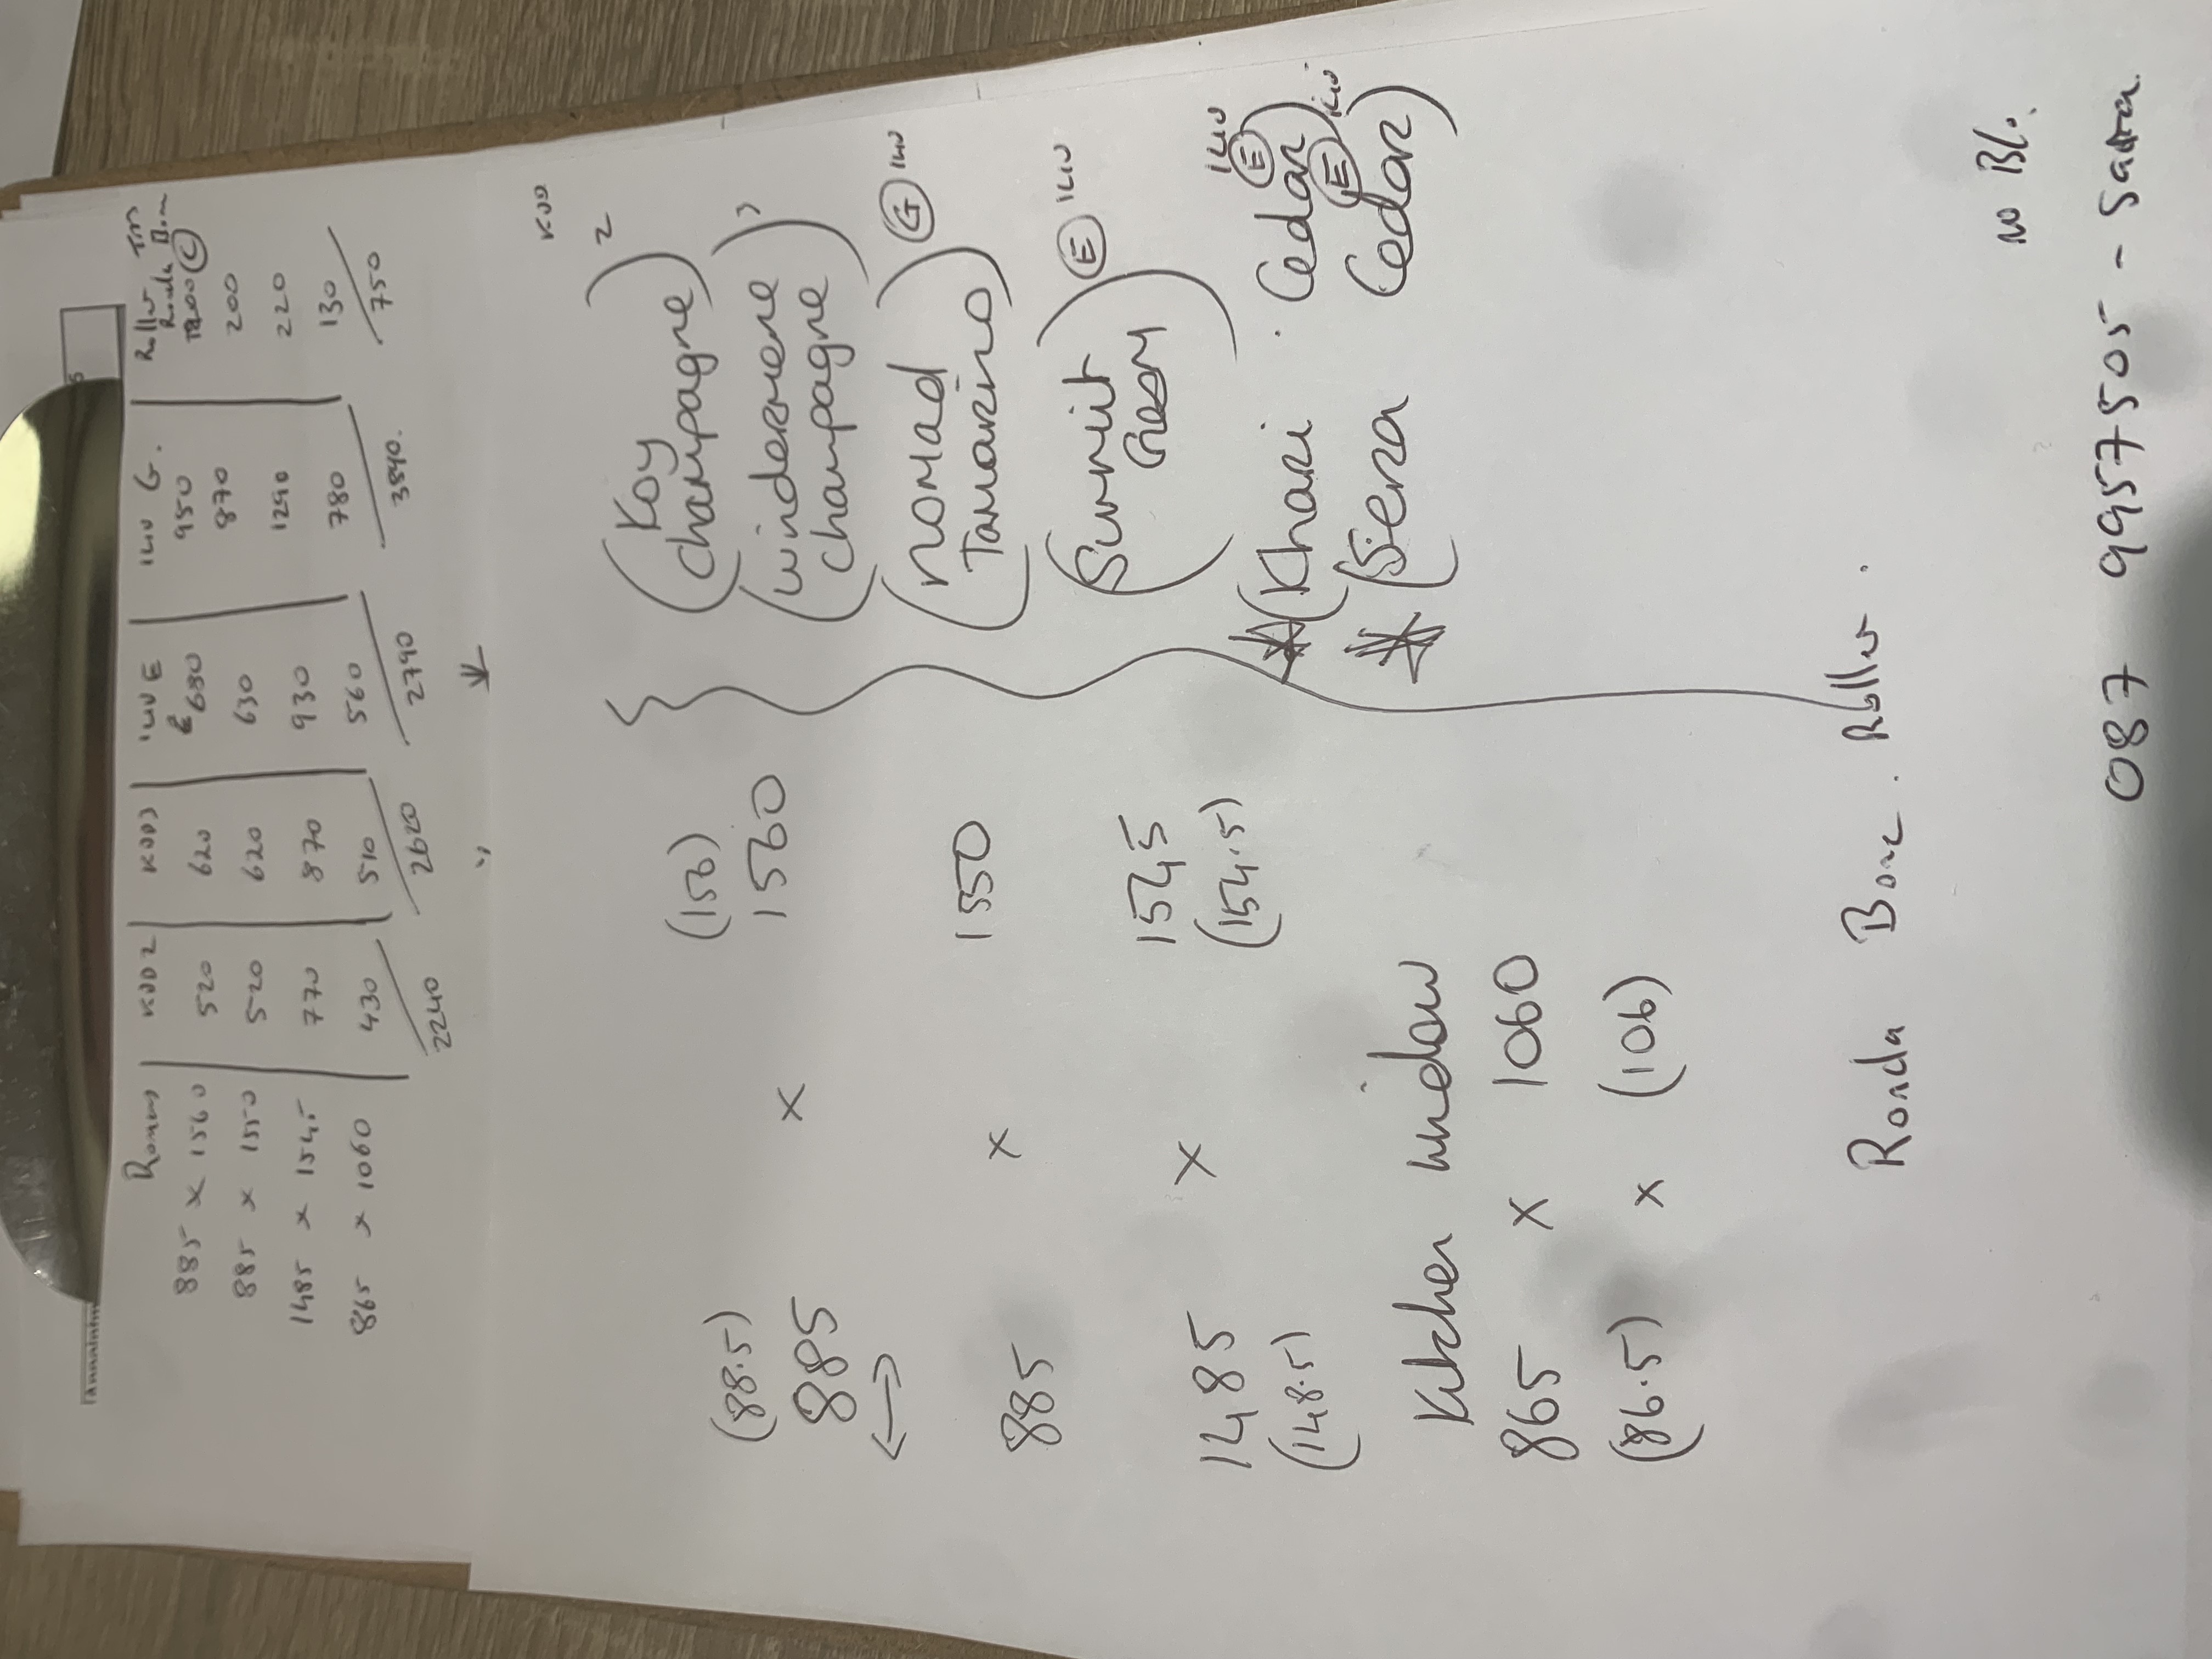 Romans KDD2 KDD3 ILIV E ILIV G. Roller Ronda B.
885 x 1560 520 620 680 950 200 (C)
885 x 1550 520 620 630 870 200
1485 x 1545 770 870 930 1290 220
865 x 1060 430 510 560 780 130
2240 2620 2790 3890. 750
KDD
(Koy 2
champagne)
(88.5) (156)
885 x 1560
(windermere 3
champagne)
(Nomad (G) ILIV
Tamarino)
885 x 1550
(Summit (E) ILIV
Grey)
1485 x 1545
(148.5) (154.5)
(Khari Cedar) (E) ILIV
(Serra Cedar) (E) ILIV
Kitchen window
865 x 1060
(86.5) x (106)
Ronda Bone Roller.
NO Bl.
087 9957505 - Sandra